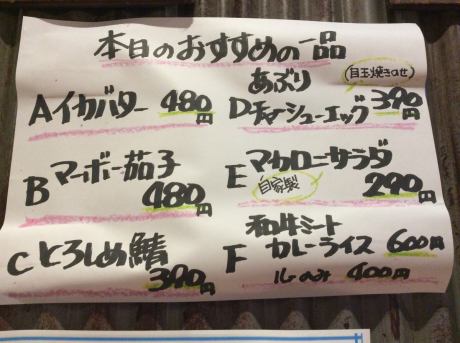 本日のおすすめの一品
Aイカバター 480円
B マーボー茄子
480円
Cとろしめ鯖
390円
あぶり
(目玉焼きのせ)
Dチャーシューエッグ 390円
E マカロニサラダ
自家製 290円
F 和牛ミート
カレーライス 600円
ルのみ 400円